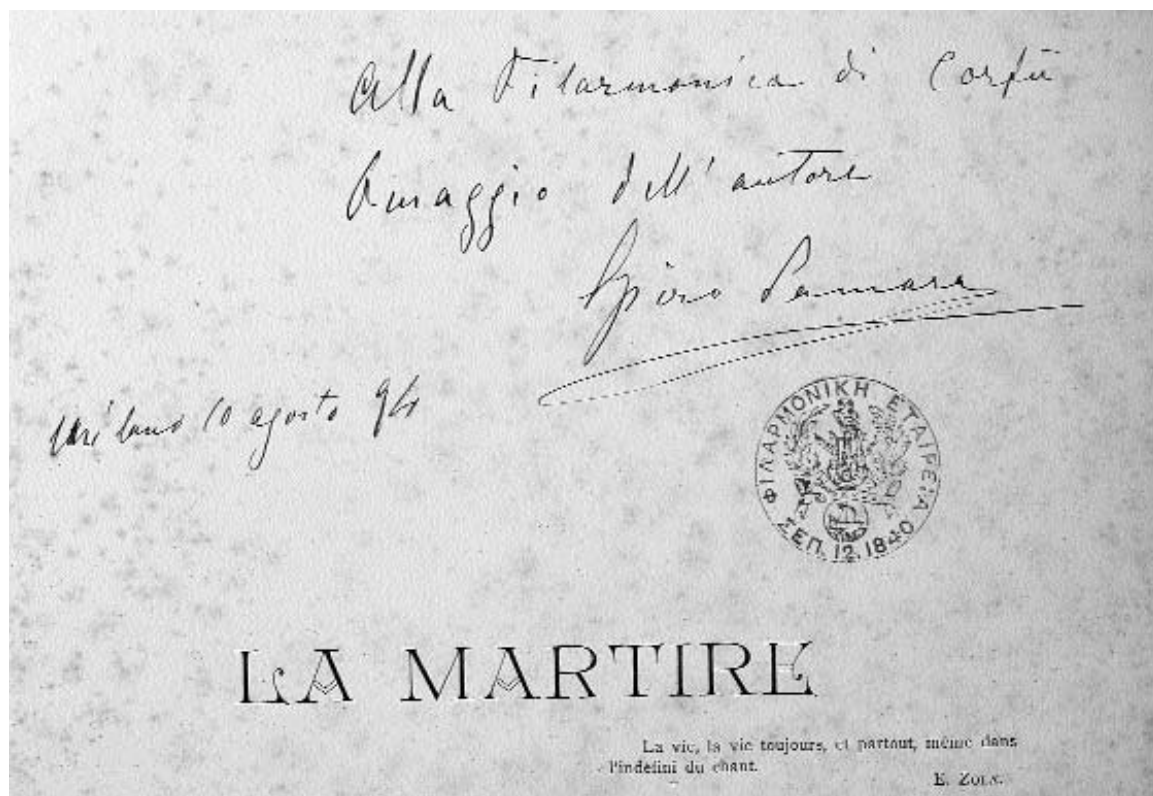 Alla Filarmonica di Corfù
Omaggio dell'autore
Spiro Samara
Milano 10 agosto 94
ΦΙΛΑΡΜΟΝΙΚΗ ΕΤΑΙΡΕΙΑ
ΣΕΠ. 12, 1840
LA MARTIRE
La vie, la vie toujours, et partout, même dans
l'indéfini du chant.
E. ZOLA.